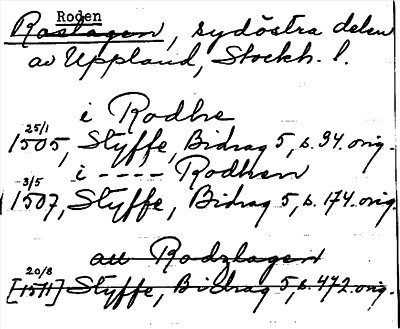 Roden
Roslagen, sydöstra delen
av Uppland, Stockh. l.
i Rodhe
25/1
1505, Styffe, Bidrag 5, s. 94. orig.
i ---- Rodhen
3/5
1507, Styffe, Bidrag 5, s. 174. orig.
au Rodzlagen
20/8
[1511] Styffe, Bidrag 5, s. 472. orig.